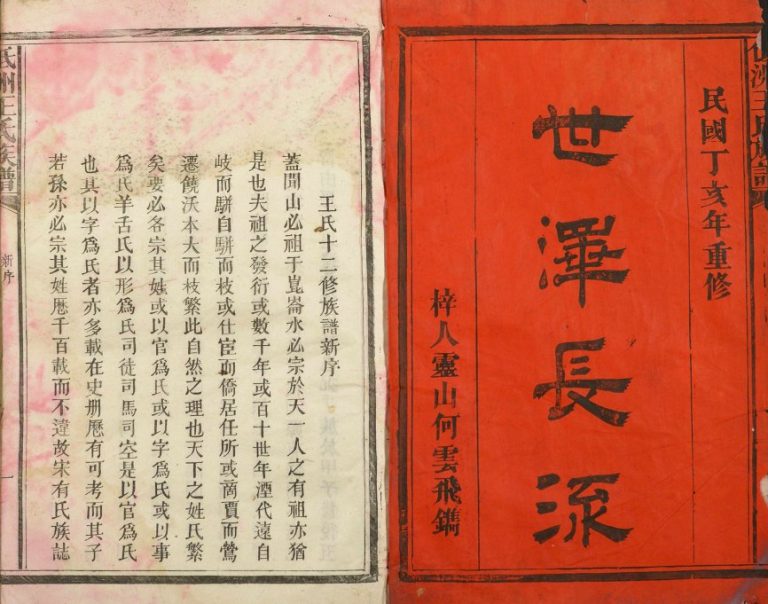 民國丁亥年重修
世澤長流
梓人靈山何雲飛鐫
王氏十二修族譜新序
蓋聞山必祖于崑崙水必宗於天一人之有祖亦猶
是也夫祖之發衍或數千年或百十世年湮代遠自
岐而駢自駢而枝或仕宦而僑居任所或啇賈而鶯
遷饒沃本大而枝繁此自然之理也天下之姓氏繁
矣要必各宗其姓或以官爲氏或以字爲氏或以事
爲氏羊舌氏以形爲氏司徒司馬司空是以官爲氏
也其以字爲氏者亦多載在史册歷有可考而其子
若孫亦必宗其姓歷千百載而不違故宋有氏族誌
洲王氏族譜
新序
一